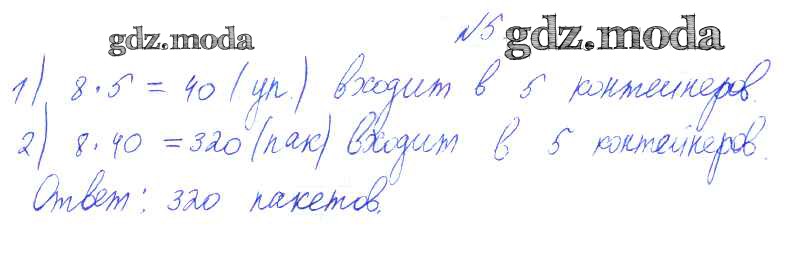 gdz.moda №5 gdz.moda
1) 8·5 = 40 (уп.) входит в 5 контейнеров.
2) 8·40 = 320 (пак) входит в 5 контейнеров.
Ответ: 320 пакетов.